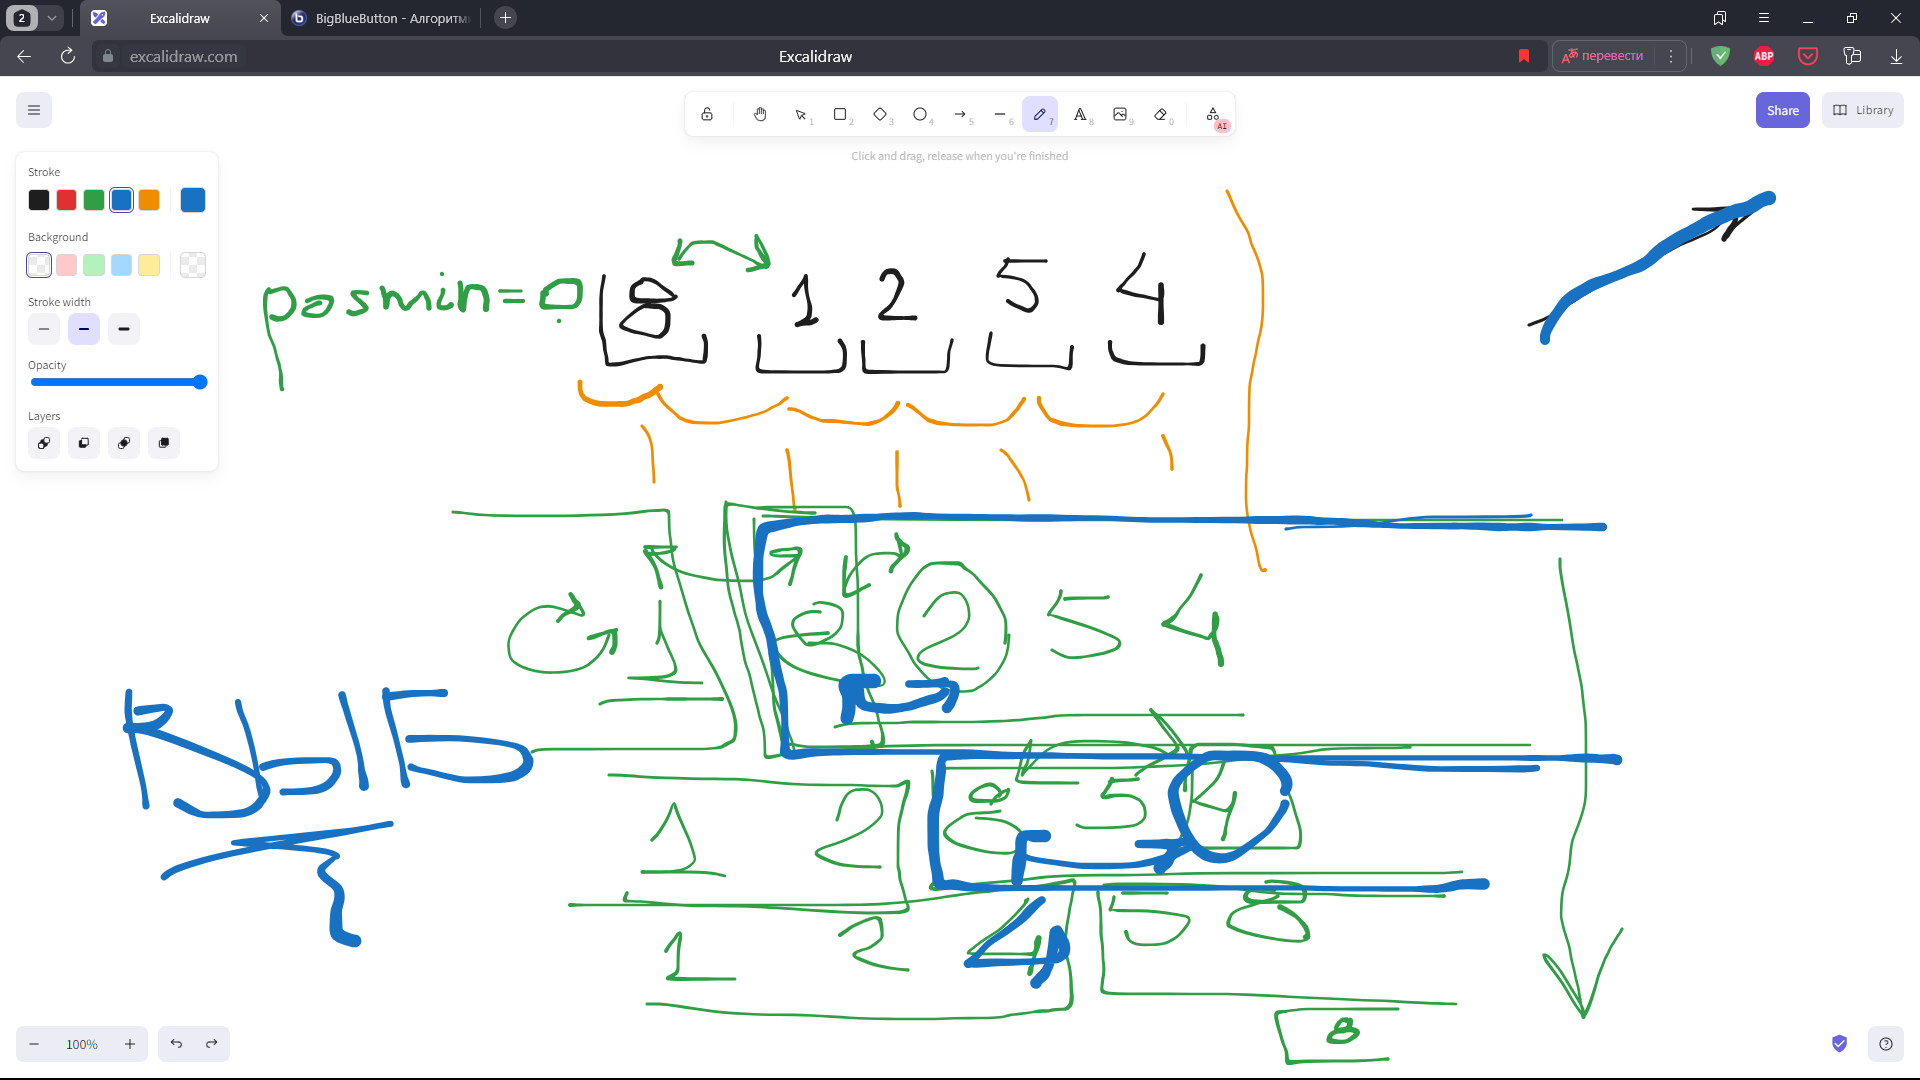 2
Excalidraw
BigBlueButton - Алгоритмы
excalidraw.com
Excalidraw
перевести
ABP
1
2
3
4
5
6
7
8
9
0
AI
Share
Library
Click and drag, release when you're finished
Stroke
Background
Stroke width
Opacity
Layers
posmin=0
8 1 2 5 4
1 8 2 5 4
1 2 8 5 4
1 2 4 5 8
8
100%